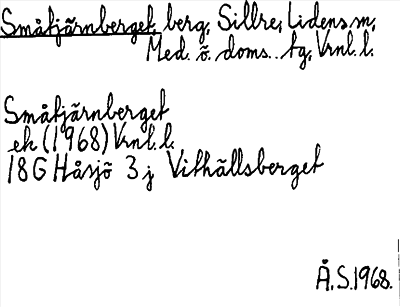 Småtjärnberget, berg, Sillre, Lidens sn,
Med. ö. doms. tg, Vrnl. l.
Småtjärnberget
ek (1968) Vrnl. l.
18G Håsjö 3j Vithällsberget
Å.S. 1968.